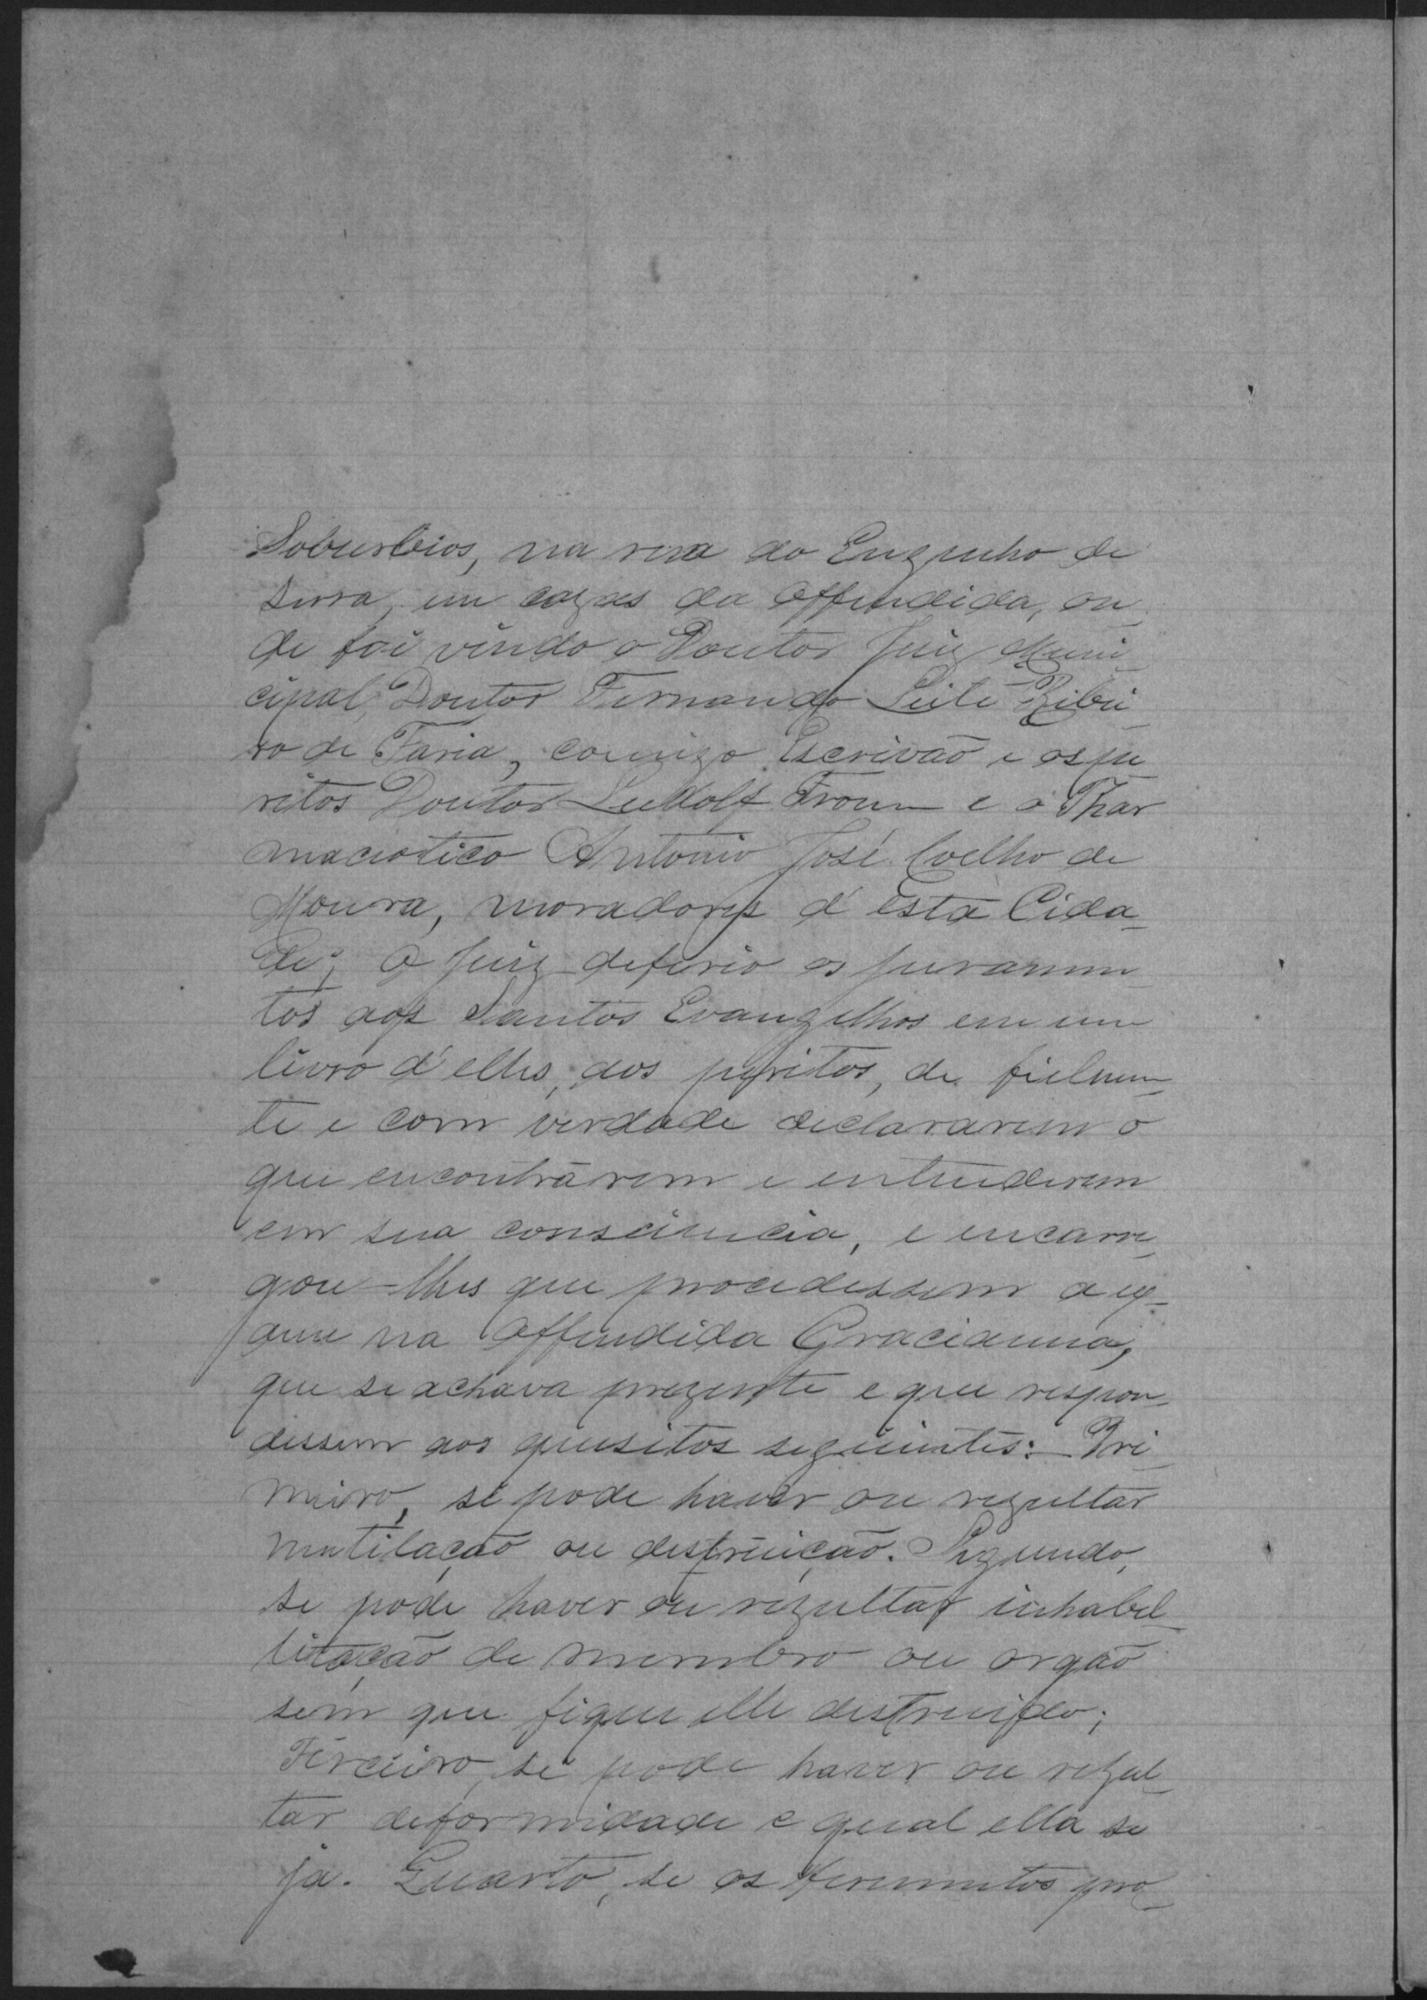 Soburbios, na rua do Engenho de
serra, em cazas da offendida, on_
de foi vindo o Doutor Juiz Muni_
cipal, Doutor Fernando Leite Ribei_
ro de Faria, comigo Escrivão e os pe
ritos Doutor Ludolf e o Phar
maciotico Antonio José Coelho de
Moura, moradores d'esta Cida_
de; O Juiz deferio os juramen_
tos aos Santos Evangelhos em um
livro d'elles, aos peritos, de fielmen_
te e com verdade declararem o
que encontrárem e entenderem
em sua consciencia, e encarre_
gou-lhes que procedessem a ex_
ame na offendida Gracianna,
que se achava prezente e que respon_
dessem aos quesitos seguintes: Pri_
meiro, se pode haver ou rezultar
mutilação ou destruição. Segundo,
se pode haver ou rezultar inhabil_
litação de membro ou orgão
sem que fique elle destruido;
Terceiro, se pode haver ou rezul_
tar deformidade e qual ella se
ja. Quarto, se os ferimentos pro_